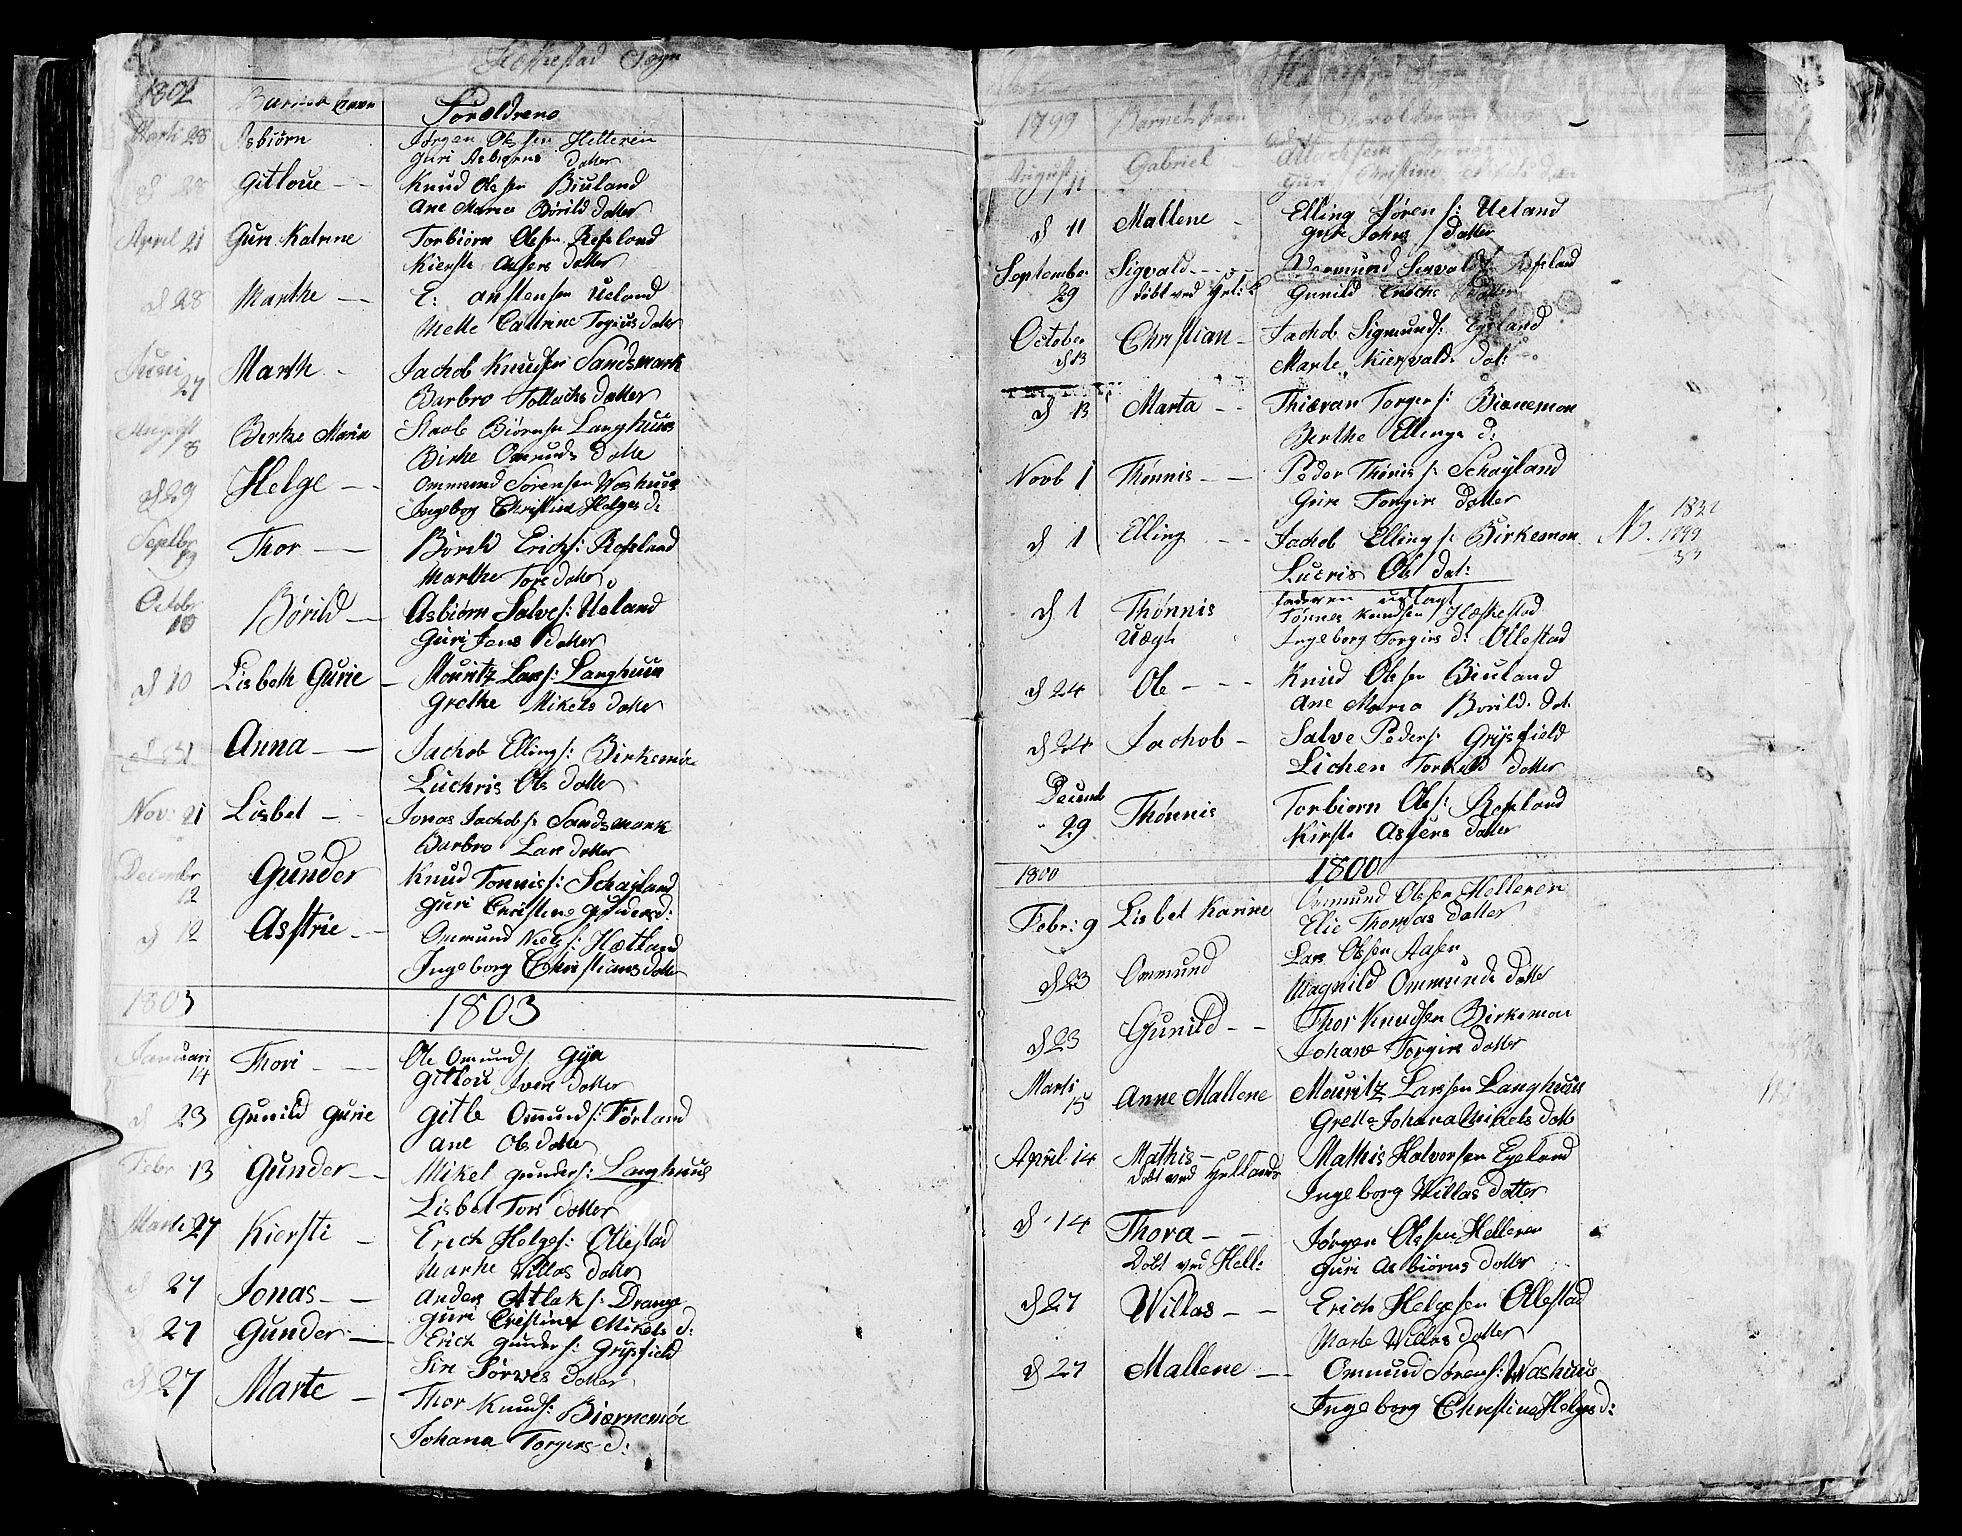 Heskestad Sogn
1802 Barnets Navn Foroldrene
Marti 28 Asbiørn Jørgen Olssen Helleren
Guri Asbiørns Dotter
d 28 Gitloue Knud Olssen Biuland
Ane Maria Børild Dotter
April 21 Guri Katrine Torbiørn Olssen Refsland
Kierste Asfers Dotter
d 28 Marthe E: anstensen Ueland
Mette Cattrine Torgius Dotter
Juni 27 Marth Jachob Knudsen Sandsmark
Barbro Tollachs Dotter
August 8 Berthe Maria Raab Biørnsen Langhuus
Birthe Omunds Dotte
d 29 Helge Ommund Sørensen Washuus
Ingeborg Christine Helges d:
Septbr 19 Thor Børild Erichs: Refsland
Marthe Tors Dotter
Octobr 10 Børild Asbiørn Salves: Ueland
Guri Jens Dotter
d 10 Lisbeth Gurie Mouritz Lars: Langhuus
Grethe Mikels Dotter
d 31 Anna Jachob Ellings: Birkemoe
Luchris Ols Dotter
Nov: 21 Lisbet Jonas Jachobs: Sandsmark
Barbro Lars Dotter
Decembr 12 Gunder Knud Tonnis: Schayland
Guri Christine Gunders d:
d 12 Asstrie Ommund Niels: Hætland
Ingeborg Christians Dotter
1803 1803
Januari 14 Thori Ole Omunds: Gya
Gitlou Ivers Dotter
d 23 Gunild Gurie Gitle Omunds: Førland
Ane Ols Dotter
Febr 13 Gunder Mikel Gunders: Langhuus
Lisbet Tors Dotter
Marti 27 Kiersti Erich Helges: Ollestad
Marthe Willas Dotter
d 27 Jonas Anders Atlaks: Drange
Guri Cristine Mikels d:
d 27 Gunder Erich Gunders: Grijsfield
Siri Sørwes Dotter
d 27 Marte Thor Knuds: Biærnemoe
Johana Torgers d:
1799 Barnets Navn Foroldrene
August 11 Gabriel
Guri Christine Mikels Dotter
d 11 Mallene Elling Søren s: Ueland
Guri Johns Dotter
September 29 Sigvald Wermund Sigvalds: Refsland
Døbt ved Gunild Erichs Dotter
October d 13 Christian Jachob Sigmunds: Eyeland
Marte Kiersvalds Dot:
d 13 Marta Thieran Torgers: Biænemon
Berthe Ellings d:
Novb 1 Thønnis Peder Thøniss: Schayland
Guri Torgirs Dotter
d 1 Elling Jachob Ellings: Birkemon N. 1832
1799
33
Lucris Ols Dat:
faderen udlagt
d 1 Thønnis Tønnes Knudsen Heskestad
Uægt Ingeborg Torgirs d: Ollestad
d 24 Ole Knud Olssen Biuland
Ane Maria Børild. Dot.
d 24 Jachob Salve Peders: Grijsfield
Lichen Torkild Dotter
Decemb 29 Thønnis Torbiørn Ols: Refsland
Kirste Assers Dotter
1800 1800
Febr: 9 Lisbet Karine Ommund Olssen Helleren
Elie Thomas Dotter
d 23 Ommund Lars Olssen Aasen
Magnild Ommunds Dotter
d 23 Gunild Thor Knudsen Birkemon
Johane Torgirs Dotter
Marti 15 Anne Mallene Mouritz Larssen Langhuus
Grette Johana Mikels Dott
April 14 Mathis Mathis Halvorsen Eyeland
Dobt ved Hetlands Ingeborg Willas Dotter
d 14 Thora Jørgen Olssen Helleren
Døbt ved Hell: Guri Asbiørns Dotter
d 27 Willas Erich Helgesen Ollestad
Marte Willas Dotter
d 27 Mallene Ommund Sørens: Washuus
Ingeborg Christine Helges d: